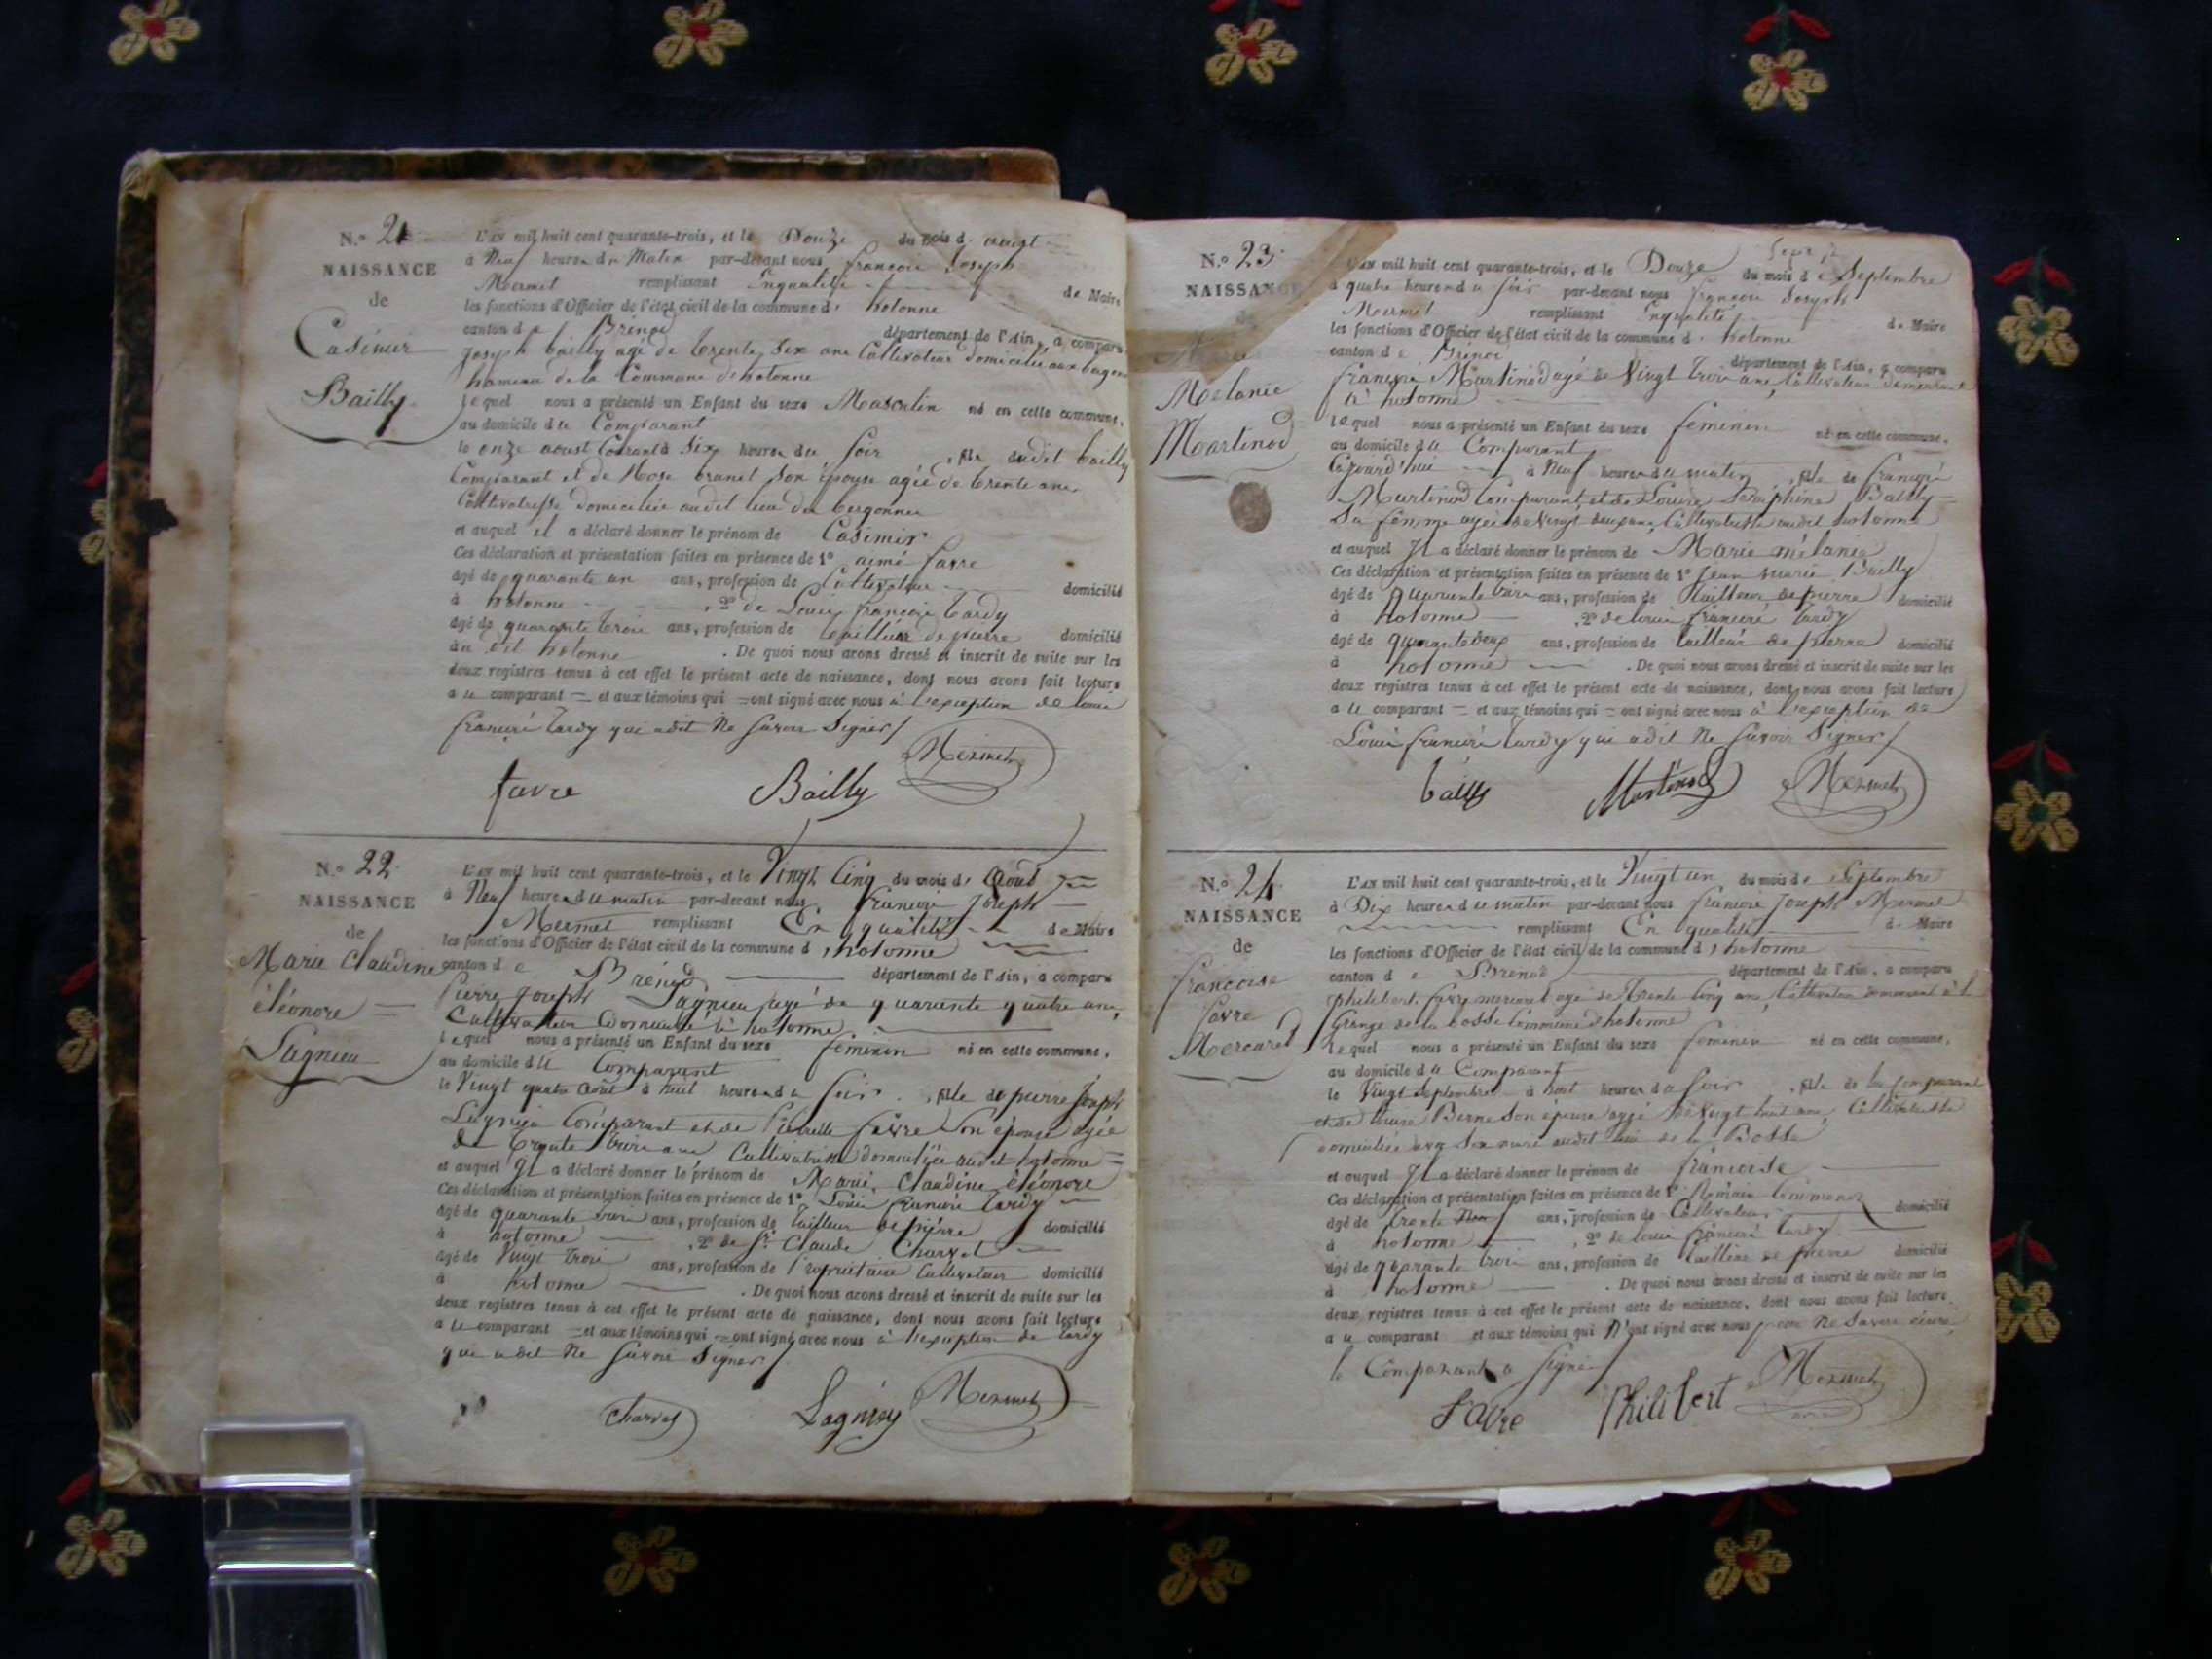 N.º 21
NAISSANCE
de
Casimir
Bailly
L'an mil huit cent quarante-trois, et le Douze du mois d'aoust
à Neuf heures du Matin par-devant nous françois Joseph
Mermet remplissant En qualité de Maire
les fonctions d'Officier de l'état civil de la commune d'hotonne
canton de Brénod département de l'Ain, a comparu
joseph bailly agé de trente six ans Cultivateur domicilié aux
hameau de la Commune d'hotonne
lequel nous a présenté un Enfant du sexe Masculin né en cette commune,
au domicile du Comparant
le onze aoust Courant à Six heures du Soir , fils dudit bailly
Comparant et de Rose brunet Son épouse agée de trente ans
Cultivatrisse domiciliée audit lieu des bergonnes
et auquel il a déclaré donner le prénom de Casimir
Ces déclaration et présentation faites en présence de 1º aimé favre
âgé de quarante un ans, profession de Cultivateur domicilié
à hotonne , 2º de Louis françois tardy
âgé de quarante trois ans, profession de tailleur de pierre domicilié
au dit hotonne . De quoi nous avons dressé et inscrit de suite sur les
deux registres tenus à cet effet le présent acte de naissance, dont nous avons fait lecture
au comparant = et aux témoins qui = ont signé avec nous à l'exception de louis
françois tardy qui a dit Ne Savoir Signer /
favre Bailly Mermet
N.º 22
NAISSANCE
de
Marie Claudine
éléonore =
Lagnieu
L'an mil huit cent quarante-trois, et le Vingt Cinq du mois de Août
à Neuf heures du matin par-devant nous françois Joseph
Mermet remplissant En qualité de Maire
les fonctions d'Officier de l'état civil de la commune d'hotonne
canton de Brénod département de l'Ain, a comparu
Pierre Joseph Lagnieu agé de quarante quatre ans,
Cultivateur Domicilié à hotonne,
lequel nous a présenté un Enfant du sexe féminin né en cette commune,
au domicile du Comparant
le Vingt quatre Août à huit heures du Soir , fille de pierre Joseph
Lagnieu Comparant et de favre Son épouse agée
de trente trois ans Cultivatrisse domiciliée audit hotonne =
et auquel Il a déclaré donner le prénom de Marie, Claudine éléonore
Ces déclaration et présentation faites en présence de 1º Louis françois tardy
âgé de quarante trois ans, profession de tailleur de pierre domicilié
à hotonne , 2º de Sr. Claude Charvet
âgé de Vingt trois ans, profession de Propriétaire Cultivateur domicilié
à hotonne . De quoi nous avons dressé et inscrit de suite sur les
deux registres tenus à cet effet le présent acte de naissance, dont nous avons fait lecture
au comparant = et aux témoins qui = ont signé avec nous à l'exception de tardy
qui a dit Ne Savoir Signer /
Charvet Lagnieu Mermet
N.º 23
NAISSANCE
de
Marie
Mélanie
Martinod
L'an mil huit cent quarante-trois, et le Douze du mois de Septembre
à quatre heures du Soir par-devant nous françois Joseph
Mermet remplissant En qualité de Maire
les fonctions d'Officier de l'état civil de la commune d'hotonne
canton de Brénod département de l'Ain, a comparu
françois Martinod agé de Vingt trois ans, Cultivateur demeurant
à hotonne
lequel nous a présenté un Enfant du sexe féminin né en cette commune,
au domicile du Comparant
à Neuf heures du matin , fille de françois
Martinod Comparant, et de Louise Séraphine Bailly =
Sa femme agée de Vingt deux ans, Cultivatrisse audit hotonne
et auquel Il a déclaré donner le prénom de Marie mélanie
Ces déclaration et présentation faites en présence de 1º Jean marie Bailly
âgé de quarante trois ans, profession de tailleur de pierre domicilié
à hotonne , 2º de louis françois tardy
âgé de quarante deux ans, profession de tailleur de pierre domicilié
à hotonne . De quoi nous avons dressé et inscrit de suite sur les
deux registres tenus à cet effet le présent acte de naissance, dont nous avons fait lecture
au comparant = et aux témoins qui = ont signé avec nous à l'exception de
Louis françois tardy qui a dit Ne Savoir Signer /
bailly Martinod Mermet
N.º 24
NAISSANCE
de
françoise
favre
Mercuret
L'an mil huit cent quarante-trois, et le Vingt un du mois de Septembre
à Dix heures du matin par-devant nous françois Joseph Mermet
remplissant En qualité de Maire
les fonctions d'Officier de l'état civil de la commune d'hotonne
canton de Brénod département de l'Ain, a comparu
philibert favre mercuret agé de trente Cinq ans, Cultivateur demeurant à la
Grange de la bosse Commune d'hotonne
lequel nous a présenté un Enfant du sexe féminin né en cette commune,
au domicile du Comparant
le Vingt Septembre à huit heures du Soir , fille de lui Comparant
et de Son épouse aggée de Vingt huit ans, Cultivatrisse
domiciliée audit lieu de la Bosse
et auquel Il a déclaré donner le prénom de françoise
Ces déclaration et présentation faites en présence de 1º Romain
âgé de trente ans, profession de Cultivateur domicilié
à hotonne , 2º de louis françois tardy
âgé de quarante trois ans, profession de tailleur de pierre domicilié
à hotonne . De quoi nous avons dressé et inscrit de suite sur les
deux registres tenus à cet effet le présent acte de naissance, dont nous avons fait lecture
au comparant et aux témoins qui N'ont signé avec nous pour Ne Savoir écrire
le Comparant a Signé /
favre Philibert Mermet